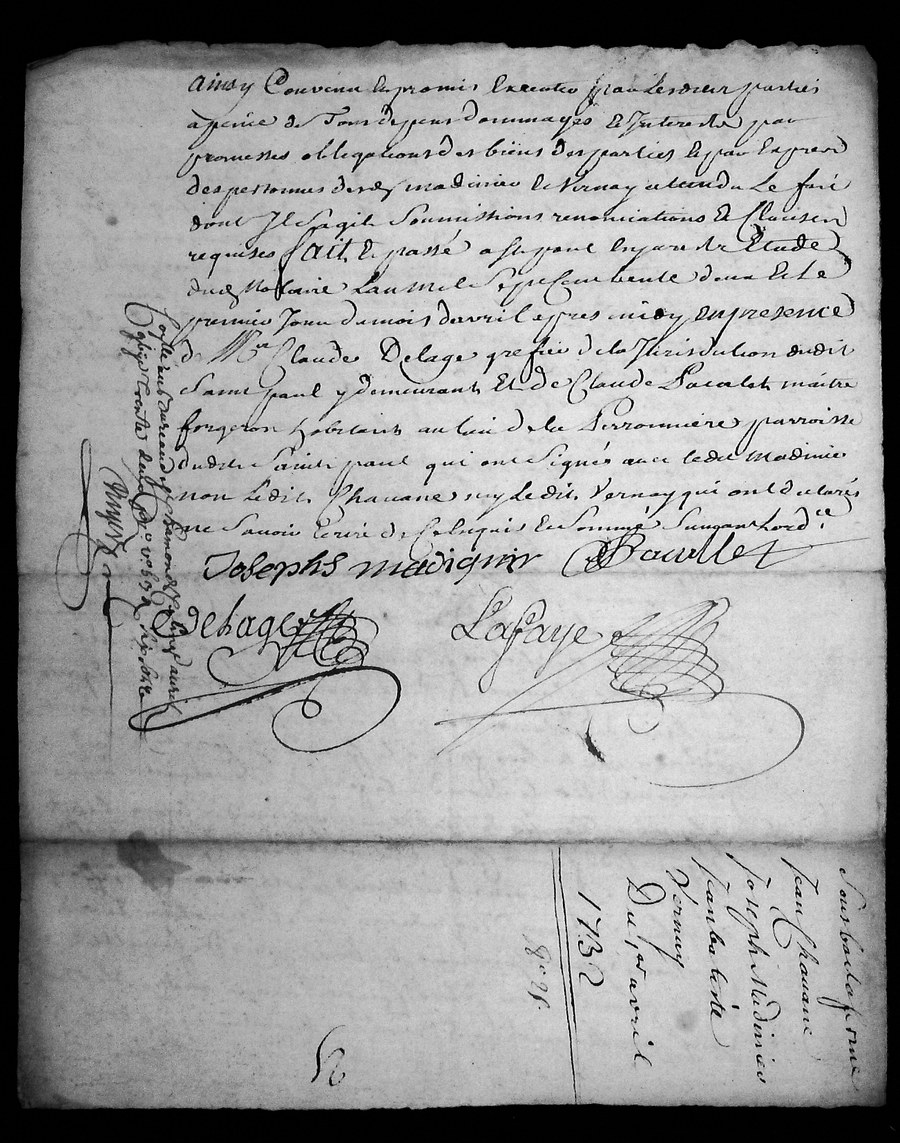 ainsy Convenu et promis Executer par Lesdites parties
a peine de Tous depens dommages & Interests par
promesses obligations des biens des parties et par Expres
des personnes desd madinier et Vernay attendu Le fait
dont Il Sagit Soumissions renonciations & Clauses
requises fait et passé a St paul en jarest Etude
dud Notaire Lan Mil Sept Cent trente deux et Le
premier Jour du mois davril apres midy en presence
de Mre Claude Delage grefier de la Jurisdiction dudit
Saint paul y demeurant Et de Claude Pacalet maitre
forgeron habitant au lieu de la Perronniere parroisse
dudit Saint paul qui ont Signés avec ledit madinier
non Ledit Chavane ny Ledit Vernay qui ont declarés
ne Savoir Ecrire de ce Enquis et Sommé Suivant Lordce
Josephs madignier
Delage
Lafaye
Controllé au bureau de St chamond Le avril
trente deux
Sousbail a ferme
Jean Chavane
Joseph Madinier
Jean batiste
Vernay
Du 1er avril
1732